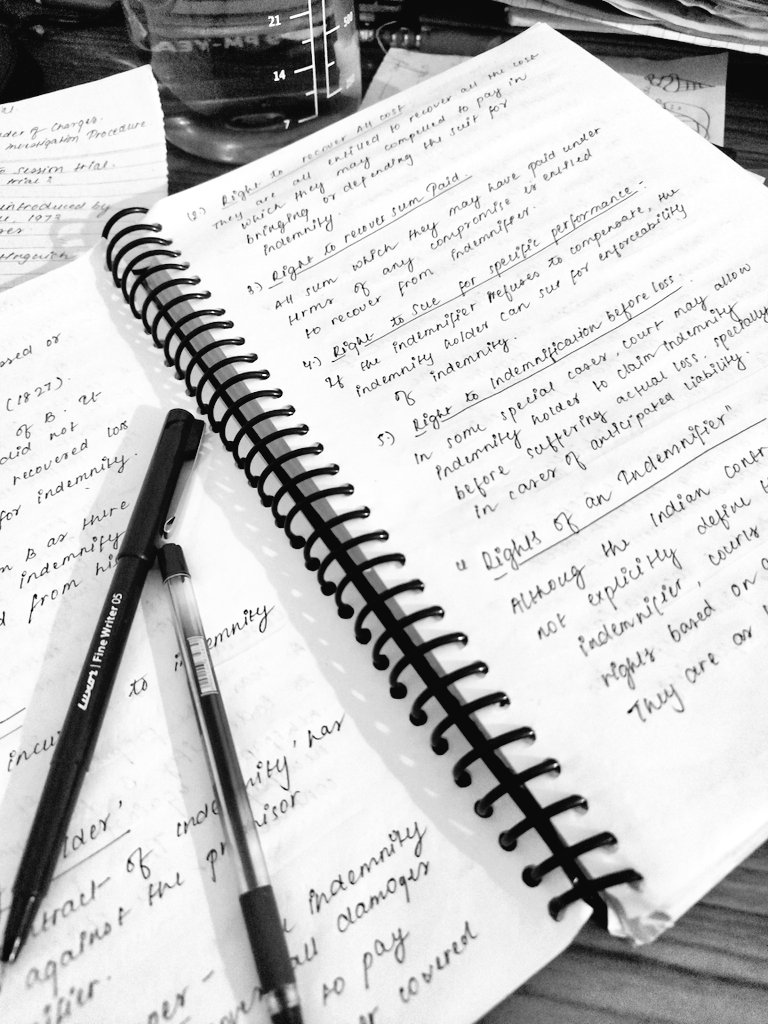 21
14
7
500
der of Charges.
Investigation Procedure
to session trial.
trial ?
introduced by
1973
Distinguish
2.) Right to recover All cost
They are all entitled to recover all the cost
which they may compelled to pay in
bringing or depending the suit for
indemnity.
3) Right to recover sum Paid.
All sum which they may have paid under
terms of any compromise is entitled
to recover from indemnifier.
4.) Right to sue for specific performance-
If the indemnifier refuses to compensate, the
indemnity holder can sue for enforceability
of indemnity.
5.) Right to Indemnification before loss.
In some special cases, court may allow
indemnity holder to claim indemnity
before suffering actual loss, specially
in cases of anticipated liability.
" Rights of an Indemnifier"
Althoug the Indian contr
not explicitly define t
indemnifier, courts
rights based on
They are as
ssed or
(1827).
of B. It
did not
recovered los
for indemnity.
m B as there
indemnity
d from hi
to indemnity
incu
lder'
ntract of inde nity' has
against the p misor
ifier.
indemnity
all damages
to pay
r covered
Luxor | Fine Writer 05